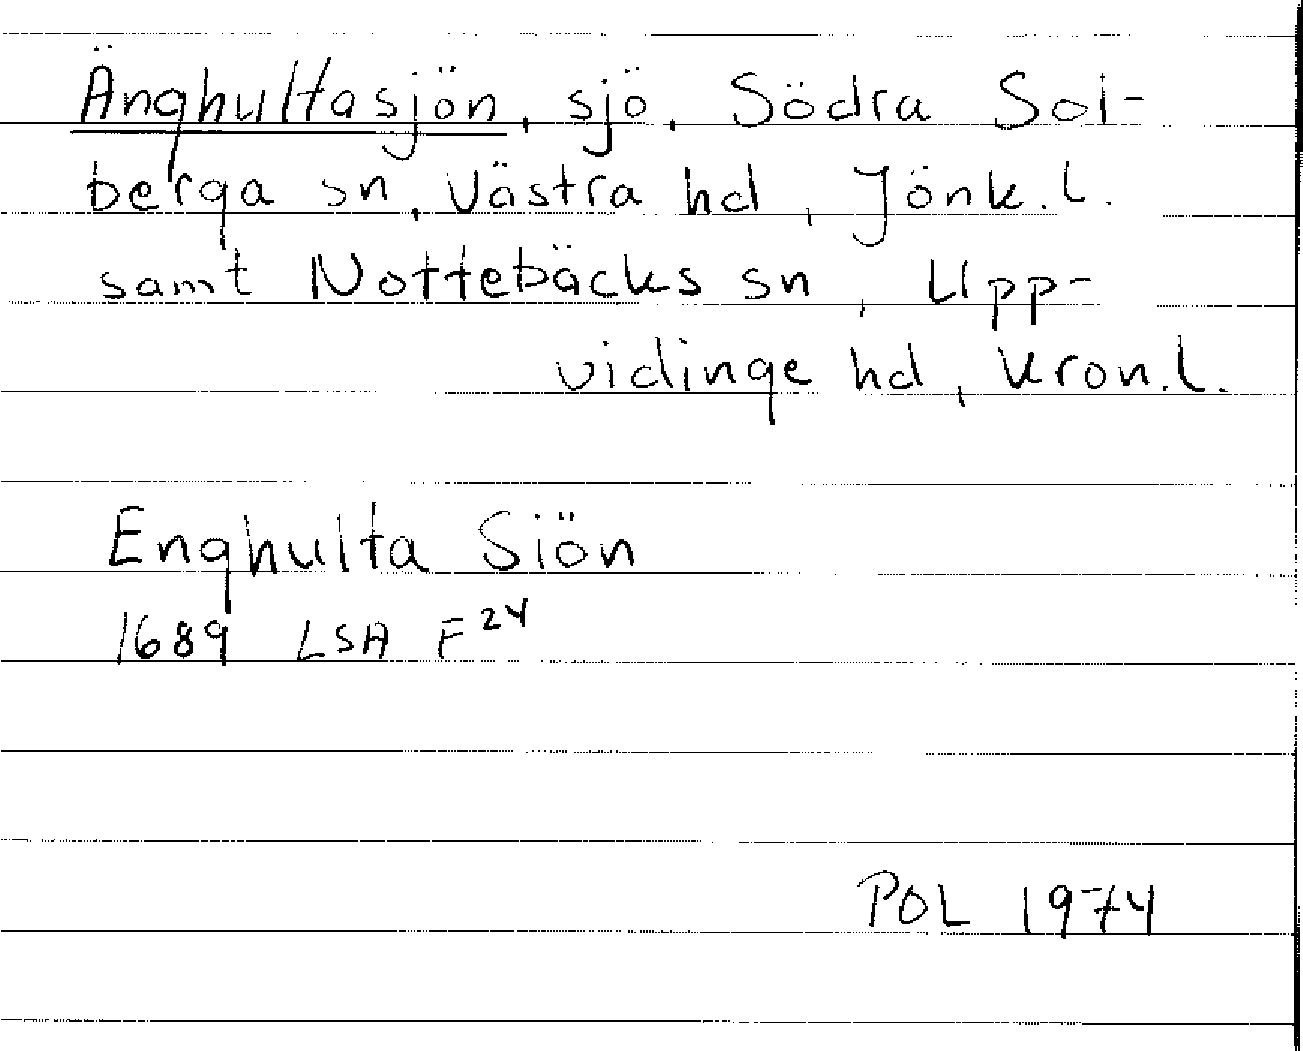 Änghultasjön, sjö, Södra Sol-
berga sn, Västra hd, Jönk.l.
samt Nottebäcks sn, Upp-
vidinge hd, Kron.l.
Enghulta Siön
1689 LSA F 24
POL 1974